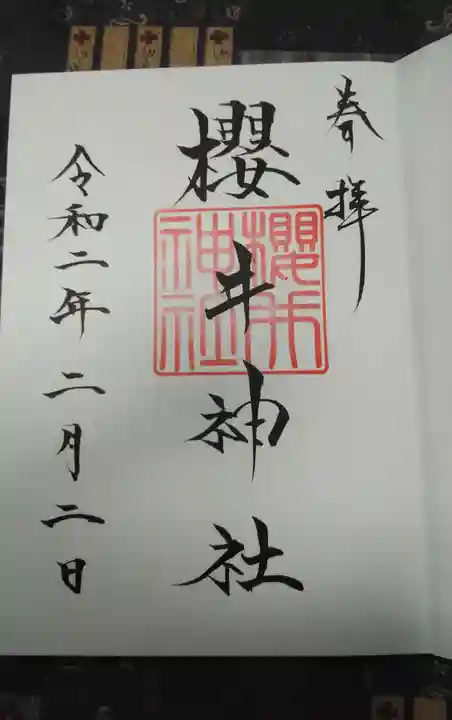 奉拝
櫻井神社
櫻井神社
令和二年二月二日